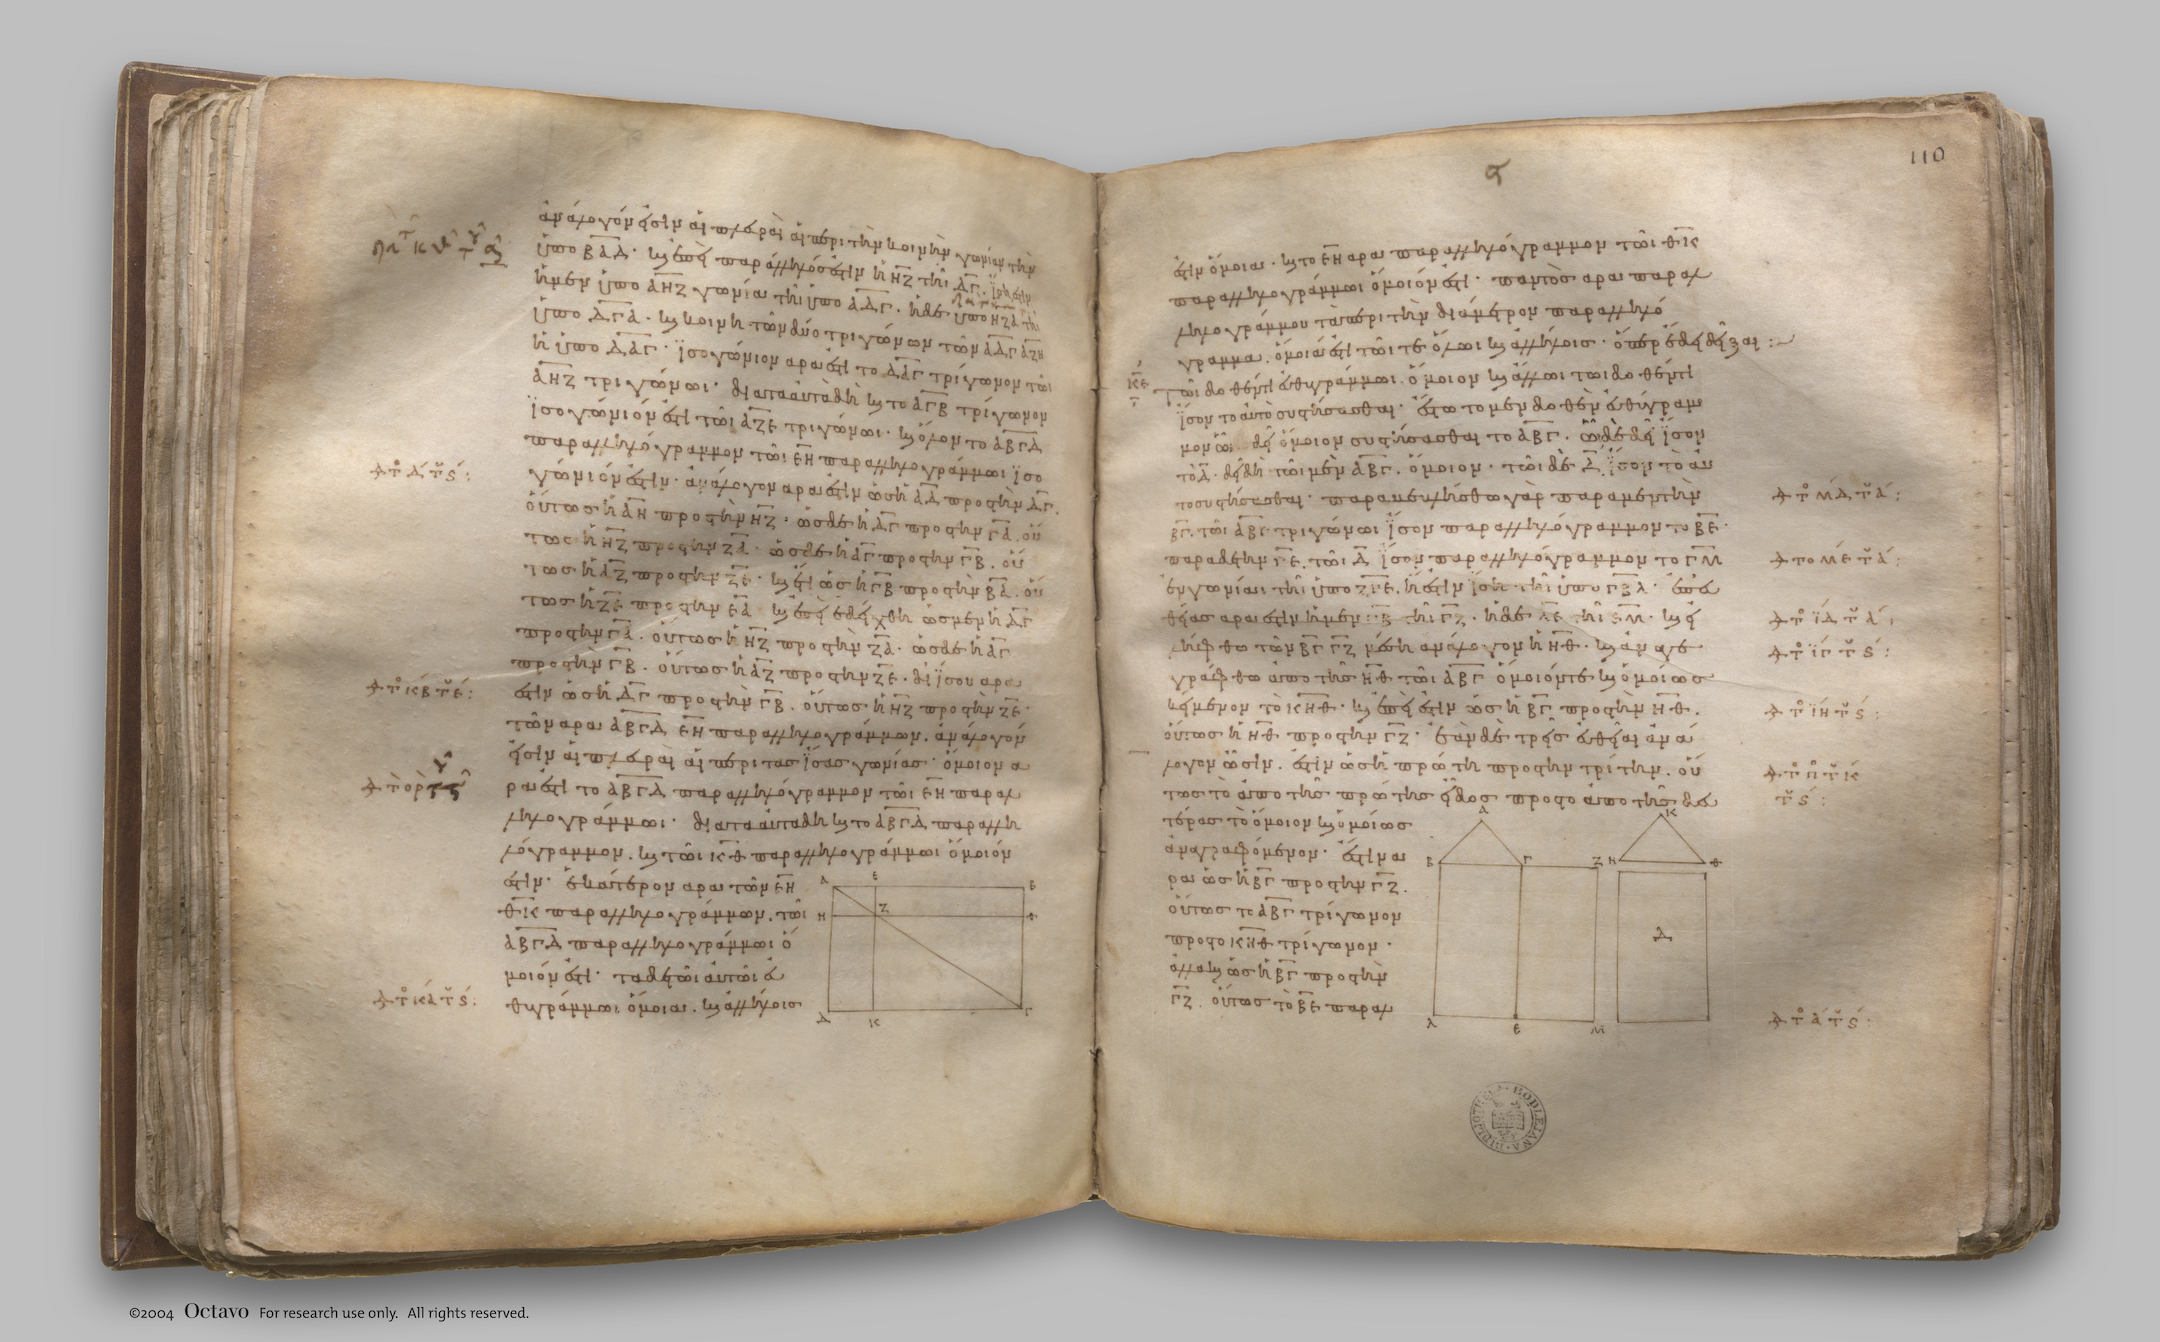 ἀνάλογόν εἰσιν αἱ πλευραὶ αἱ περὶ τὴν κοινὴν γωνίαν τὴν
ὑπο ΒΑΔ· ϗ ἐπεὶ παράλληλόσ ἐστιν ἡ ΗΖ τῆι ΔΓ. ἴση ἐστιν
ἡ μεν ὑπο ΑΗΖ γωνία τῆι ὑπο ΑΔΓ. ἡ δε ὑπο ΗΖΑ τῆι
ὑπο ΔΓΑ. ϗ κοινὴ τῶν δύο τριγώνων τῶν ΑΔΓ ΑΖΗ
ἡ ὑπο ΔΑΓ· ϊσογώνιον αρα ἐστι το ΔΑΓ τρίγωνον τῶι
ΑΗΖ τριγώνωι· δια τα αὐτὰ δὴ ϗ το ΑΓΒ τρίγωνον
ϊσογώνιόν ἐστι τῶι ΑΖΕ τριγώνωι· ϗ ὅλον το ΑΒΓΔ
παραλληλόγραμμον τῶι ΕΗ παραλληλογράμμωι ϊσο
γώνιόν ἐστιν· ἀνάλογον αρα ἐστιν ὡσ ἡ ΑΔ προσ τὴν ΔΓ.
οὕτωσ ἡ ΑΗ προσ τὴν ΗΖ· ὡσ δε ἡ ΔΓ προσ την ΓΑ. οὕ
τωσ ἡ ΗΖ προσ την ΖΑ· ὡσ δε ἡ ΑΓ προσ την ΓΒ. οὕ
τωσ ἡ ΑΖ προσ την ΖΕ· ϗ ἔτι ὡσ ἡ ΓΒ προσ τὴν ΒΑ. οὕ
τωσ ἡ ΖΕ προσ την ΕΑ· ϗ ἐπεὶ ἐδείχθη ὡσ μεν ἡ ΔΓ
προσ την ΓΑ. οὕτωσ ἡ ΗΖ προσ τὴν ΖΑ· ὡσ δε ἡ ΑΓ
προσ την ΓΒ. οὕτωσ ἡ ΑΖ προσ την ΖΕ· δι ϊσου αρα
ἐστιν ὡσ ἡ ΔΓ προσ τὴν ΓΒ. οὕτωσ ἡ ΗΖ προσ τὴν ΖΕ·
τῶν αρα ΑΒΓΔ ΕΗ παραλληλογράμμων. ἀνάλογόν
εἰσιν αἱ πλευραὶ αἱ περι τασ ϊσασ γωνίασ· ὅμοιον α
ρα ἐστι το ΑΒΓΔ παραλληλόγραμμον τῶι ΕΗ παραλ
ληλογράμμωι· δια τα αυτα δη ϗ το ΑΒΓΔ παραλλη
λόγραμμον. ϗ τῶι ΚΘ παραλληλογράμμωι ὅμοιόν
ἐστιν· ἑκάτερον αρα τῶν ΕΗ
ΘΚ παραλληλογράμμων. τῶι
ΑΒΓΔ παραλληλογράμμωι ὅ
μοιόν ἐστι· τα δε τῶι ἀυτῶι ἐυ
θυγράμμωι ὅμοια. ϗ ἀλλήλοισ
Α Ε Β
Η Ζ Θ
Δ Κ Γ
110
ϛ
ἐστιν ὅμοια· ϗ το ΕΗ αρα παραλληλόγραμμον τῶι ΘΚ
παραλληλογράμμωι ὅμοιόν ἐστι· παντὸσ αρα παραλ
ληλογράμμου τα περι τὴν διάμετρον παραλληλό
γραμμα. ὅμοιά ἐστι τῶι τε ὅλωι ϗ ἀλλήλοισ· ὅπερ ἔδει δεῖξαι :
ΚΕ
Τῶι δοθέντι ἐυθυγράμμωι. ὅμοιον ϗ ἄλλωι τωι δοθέντι
ϊσον το αυτὸ συστήσασθαι· ἔστω το μεν δοθὲν ἐυθύγραμ
μον ὧι δεῖ ὅμοιον συστήσασθαι το ΑΒΓ. ὧι δὲ δεῖ ϊσον
τὸ Δ. δεῖ δὴ τῶι μὲν ΑΒΓ. ὅμοιον· τῶι δὲ Δ ϊσον τὸ αυ
το συστήσασθαι· παραβεβλήσθω γὰρ παρα μεν τὴν
ΒΓ. τῶι ΑΒΓ τριγώνωι ϊσον παραλληλόγραμμον το ΒΕ·
παρα δε την ΓΕ. τῶι Δ ϊσον παραλληλόγραμμον το ΓΜ
ἐν γωνίαι τῆι ὑπο ΖΓΕ. ἥ ἐστιν ϊση τῆι ὑπο ΓΒΛ· ἐπ ἐυ
θείασ αρα ἐστιν ἡ μεν ΒΓ τῆι ΓΖ. ἡ δε ΛΕ τῆι ΕΜ· ϗ εἰ
λήφθω τῶν ΒΓ ΓΖ μέση ἀνάλογον ἡ ΗΘ· ϗ ἀναγε
γράφθω ἀπο τῆσ ΗΘ τῶι ΑΒΓ ὅμοιόν τε ϗ ὁμοίωσ
κείμενον τὸ ΚΗΘ· ϗ ἐπεί ἐστιν ὡσ ἡ ΒΓ προσ τὴν ΗΘ.
ὅυτωσ ἡ ΗΘ προσ την ΓΖ· ἐὰν δὲ τρεῖσ ἐυθεῖαι ἀνα
λογον ὦσιν. ἔστιν ὡσ ἡ πρώτη προσ την τρίτην. οὕ
τωσ τὸ ἀπο τῆσ πρώτησ εἶδοσ προσ το ἀπο τῆσ δευ
τέρασ τὸ ὅμοιον ϗ ὁμοίωσ
ἀναγραφόμενον· ἔστιν α
ρα ὡσ ἡ ΒΓ προσ την ΓΖ.
οὕτωσ το ΑΒΓ τρίγωνον
προσ το ΚΗΘ τρίγωνον·
ἀλλα ϗ ὡσ ἡ ΒΓ προσ τὴν
ΓΖ. οὕτωσ τὸ ΒΕ παραλ
Α Κ
Β Γ Ζ Η Θ
Δ
Λ Ε Μ
BIBLIOTHECA BODLEIANA
©2004 Octavo For research use only. All rights reserved.